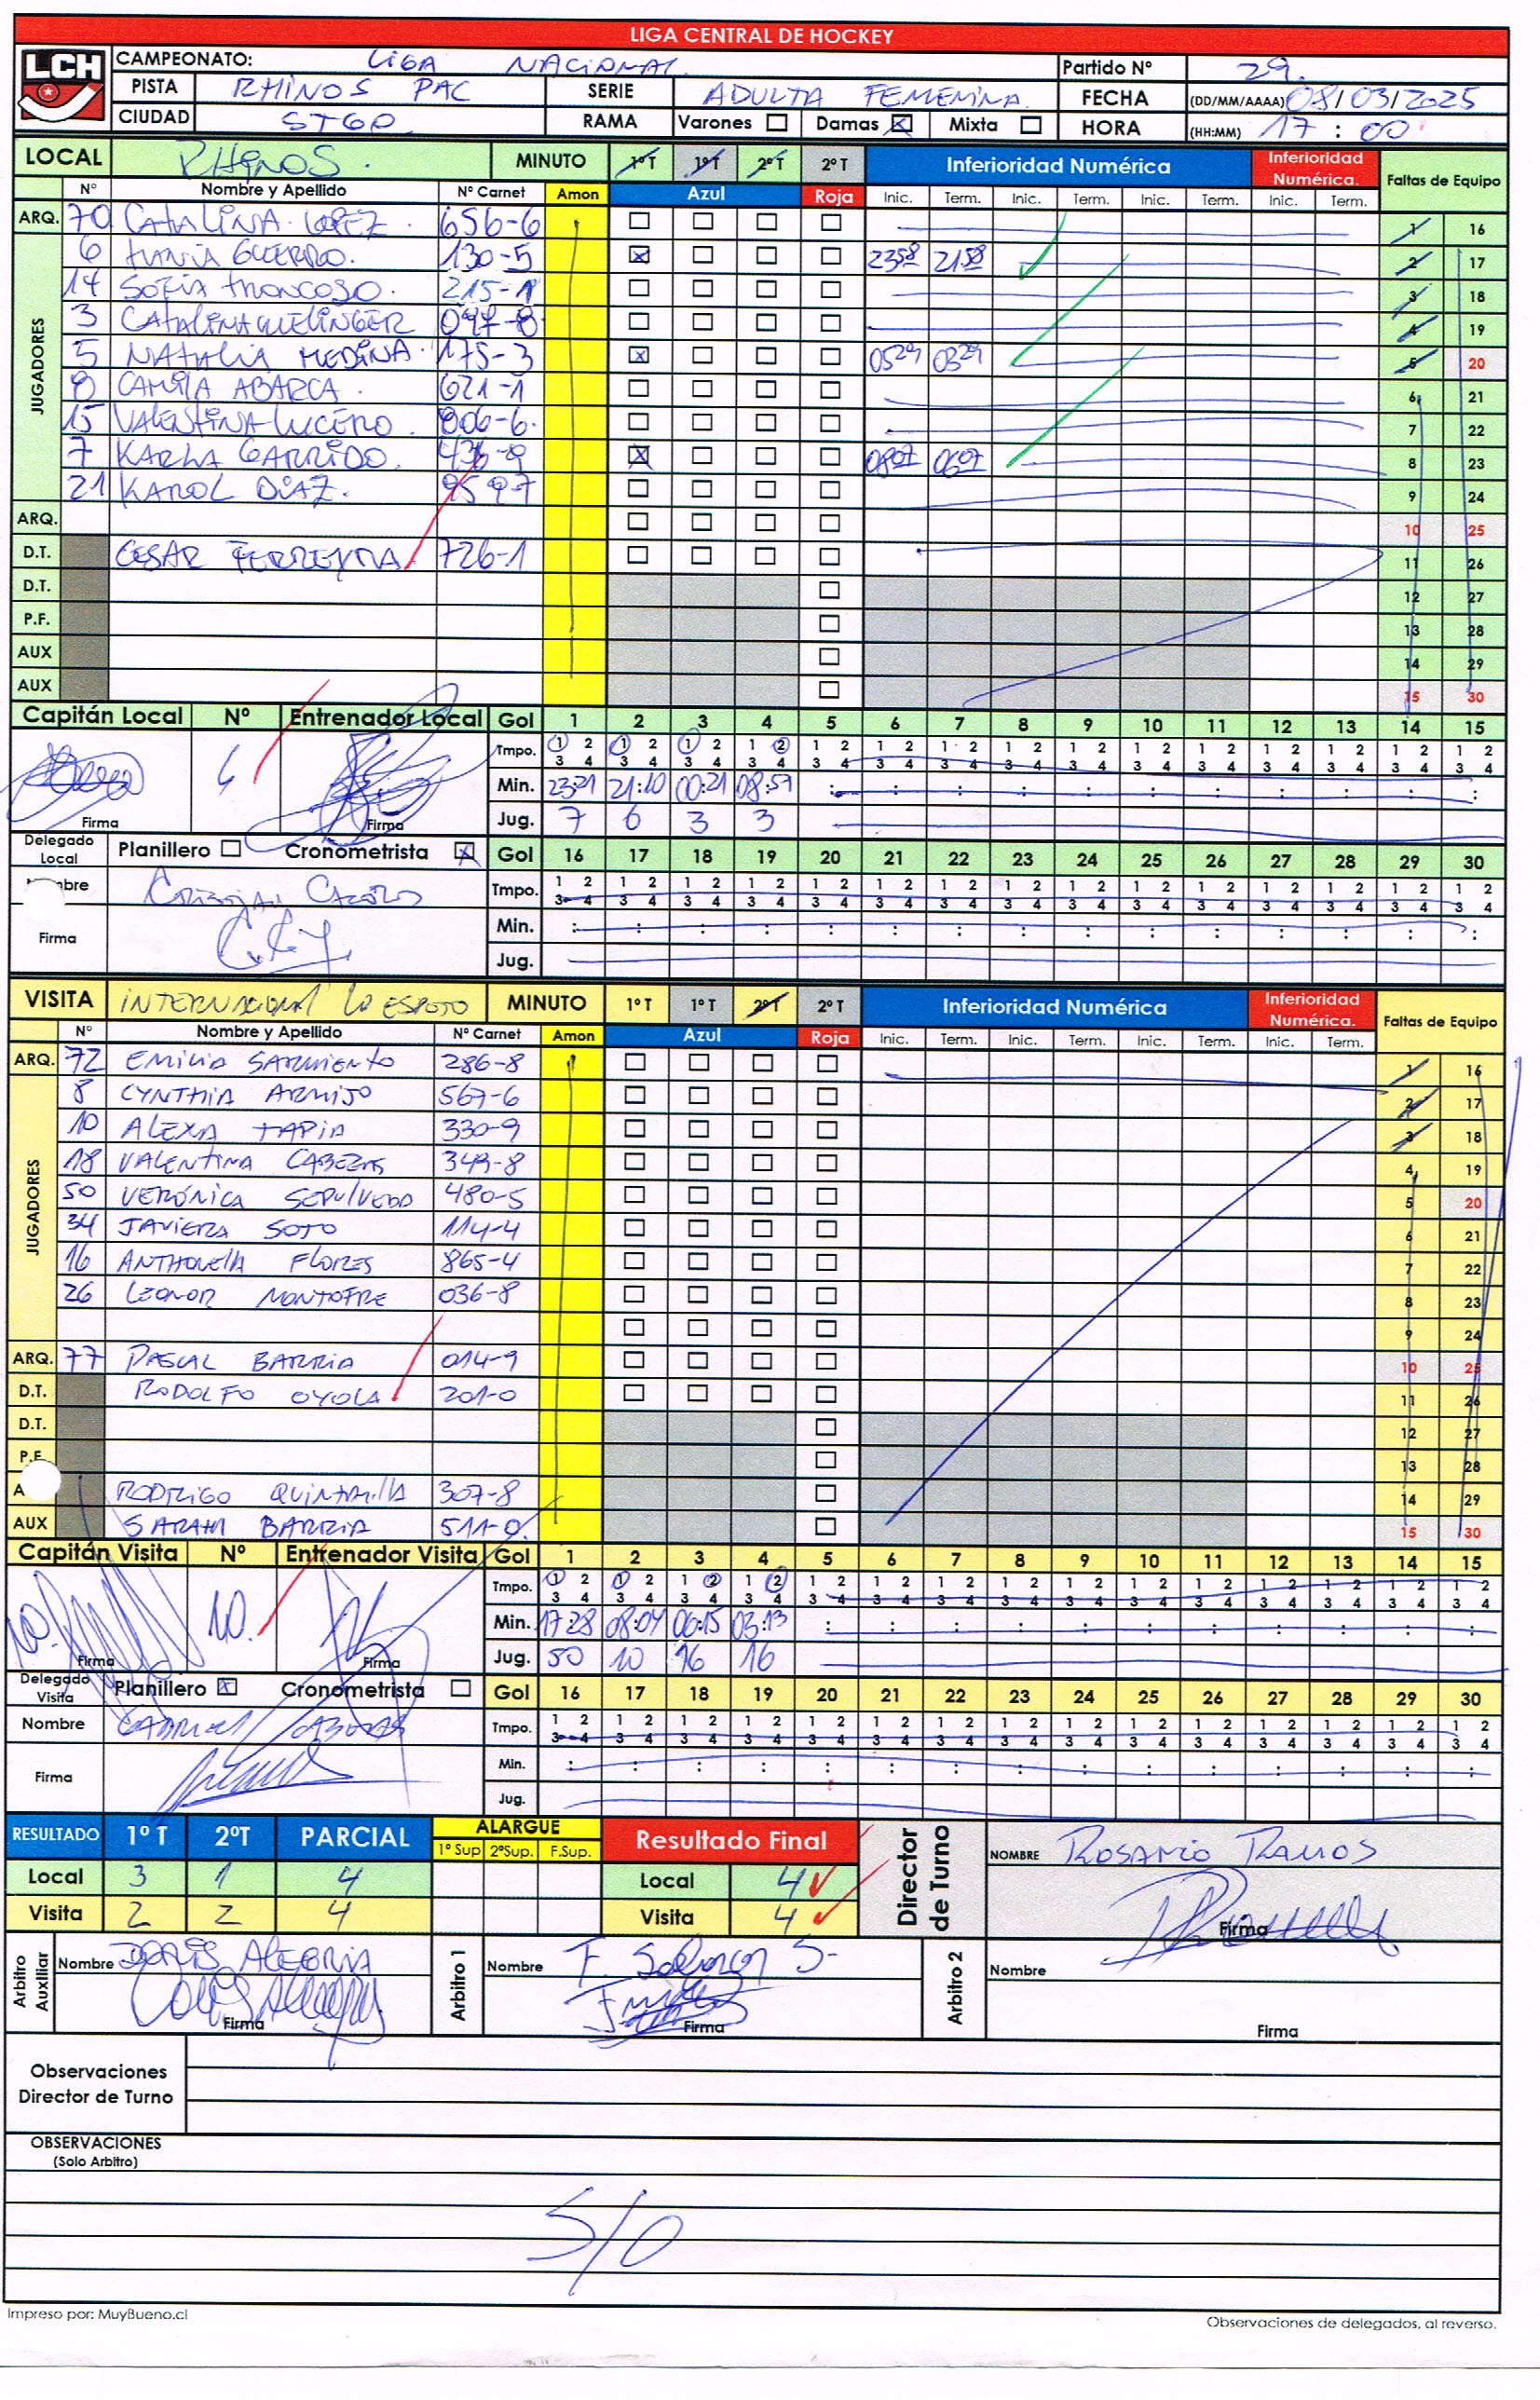 LIGA CENTRAL DE HOCKEY
LCH
CAMPEONATO: LIGA NACIONAL Partido Nº 29.
PISTA RHINOS PAC SERIE ADULTA FEMENINA. FECHA (DD/MM/AAAA) 08/03/2025
CIUDAD STGO RAMA Varones Damas Mixta HORA (HH:MM) 17:00
LOCAL RHINOS. MINUTO 1º T 1º T 2º T 2º T Inferioridad Numérica Inferioridad Numérica. Faltas de Equipo
Nº Nombre y Apellido Nº Carnet Amon Azul Roja Inic. Term. Inic. Term. Inic. Term. Inic. Term.
ARQ. 70 CATALINA LOPEZ. 656-6 1 16
JUGADORES
6 130-5 2358 2158 2 17
14 SOFIA TRONCOSO. 215-1 3 18
3 CATALINA 097-8 4 19
5 NATALIA MEDINA. 175-3 0529 0329 5 20
8 CAMILA ABARCA. 621-1 6 21
15 VALENTINA LUCERO. 806-6. 7 22
7 KARLA GARRIDO. 436-9 0807 0607 8 23
21 KAROL DIAZ. 959-7 9 24
ARQ. 10 25
D.T. CESAR FERREYRA 726-1 11 26
D.T. 12 27
P.F. 13 28
AUX 14 29
AUX 15 30
Capitán Local Nº Entrenador Local Gol 1 2 3 4 5 6 7 8 9 10 11 12 13 14 15
Tmpo. 1 2 1 2 1 2 1 2 1 2 1 2 1 2 1 2 1 2 1 2 1 2 1 2 1 2 1 2 1 2
3 4 3 4 3 4 3 4 3 4 3 4 3 4 3 4 3 4 3 4 3 4
6 Min. 23:21 21:10 00:21 08:59
Firma Firma Jug. 7 6 3 3
Delegado Local Planillero Cronometrista Gol 16 17 18 19 20 21 22 23 24 25 26 27 28 29 30
Nombre Tmpo. 1 2 1 2 1 2 1 2 1 2 1 2 1 2 1 2 1 2 1 2 1 2 1 2 1 2 1 2 1 2
3 4 3 4 3 4 3 4 3 4 3 4 3 4 3 4 3 4 3 4 3 4 3 4 3 4 3 4 3 4
Firma Min.
Jug.
VISITA INTERNACIONAL LO ESPEJO MINUTO 1º T 1º T 2º T 2º T Inferioridad Numérica Inferioridad Numérica. Faltas de Equipo
Nº Nombre y Apellido Nº Carnet Amon Azul Roja Inic. Term. Inic. Term. Inic. Term. Inic. Term.
ARQ. 72 EMILIA SARMIENTO 286-8 1 16
JUGADORES
8 CYNTHIA ARMIJO 567-6 2 17
10 ALEXA TAPIA 330-9 3 18
18 VALENTINA CABEZAS 349-8 4 19
50 VERÓNICA SEPULVEDA 480-5 5 20
34 JAVIERA SOTO 114-4 6 21
16 ANTHONELLA FLORES 865-4 7 22
26 LEONOR MONTOFRE 036-8 8 23
9 24
ARQ. 77 PASCAL BARRIA 014-9 10 25
D.T. RODOLFO OYOLA 201-0 11 26
D.T. 12 27
P.F. 13 28
A RODRIGO QUINTANILLA 307-8 14 29
AUX SARAH BARRIA 511-0. 15 30
Capitán Visita Nº Entrenador Visita Gol 1 2 3 4 5 6 7 8 9 10 11 12 13 14 15
Tmpo. 1 2 1 2 1 2 1 2 1 2 1 2 1 2 1 2 1 2 1 2 1 2 1 2 1 2 1 2 1 2
3 4 3 4 3 4 3 4 3 4 3 4 3 4 3 4 3 4 3 4 3 4 3 4 3 4 3 4 3 4
10. Min. 17:28 08:04 06:15 03:13
Firma Firma Jug. 50 10 16 16
Delegado Visita Planillero Cronometrista Gol 16 17 18 19 20 21 22 23 24 25 26 27 28 29 30
Nombre Tmpo. 1 2 1 2 1 2 1 2 1 2 1 2 1 2 1 2 1 2 1 2 1 2 1 2 1 2 1 2 1 2
3 4 3 4 3 4 3 4 3 4 3 4 3 4 3 4 3 4 3 4 3 4 3 4 3 4 3 4 3 4
Firma Min.
Jug.
RESULTADO 1º T 2ºT PARCIAL ALARGUE 1º Sup 2ºSup. F.Sup. Resultado Final Director de Turno NOMBRE ROSARIO RAMOS
Local 3 1 4 Local 4
Visita 2 2 4 Visita 4 Firma
Arbitro Auxiliar Nombre DORIS ALEGRIA Arbitro 1 Nombre F. S. Arbitro 2 Nombre
Firma Firma Firma
Observaciones
Director de Turno
OBSERVACIONES
(Solo Arbitro)
S/O
Impreso por: MuyBueno.cl Observaciones de delegados, al reverso.